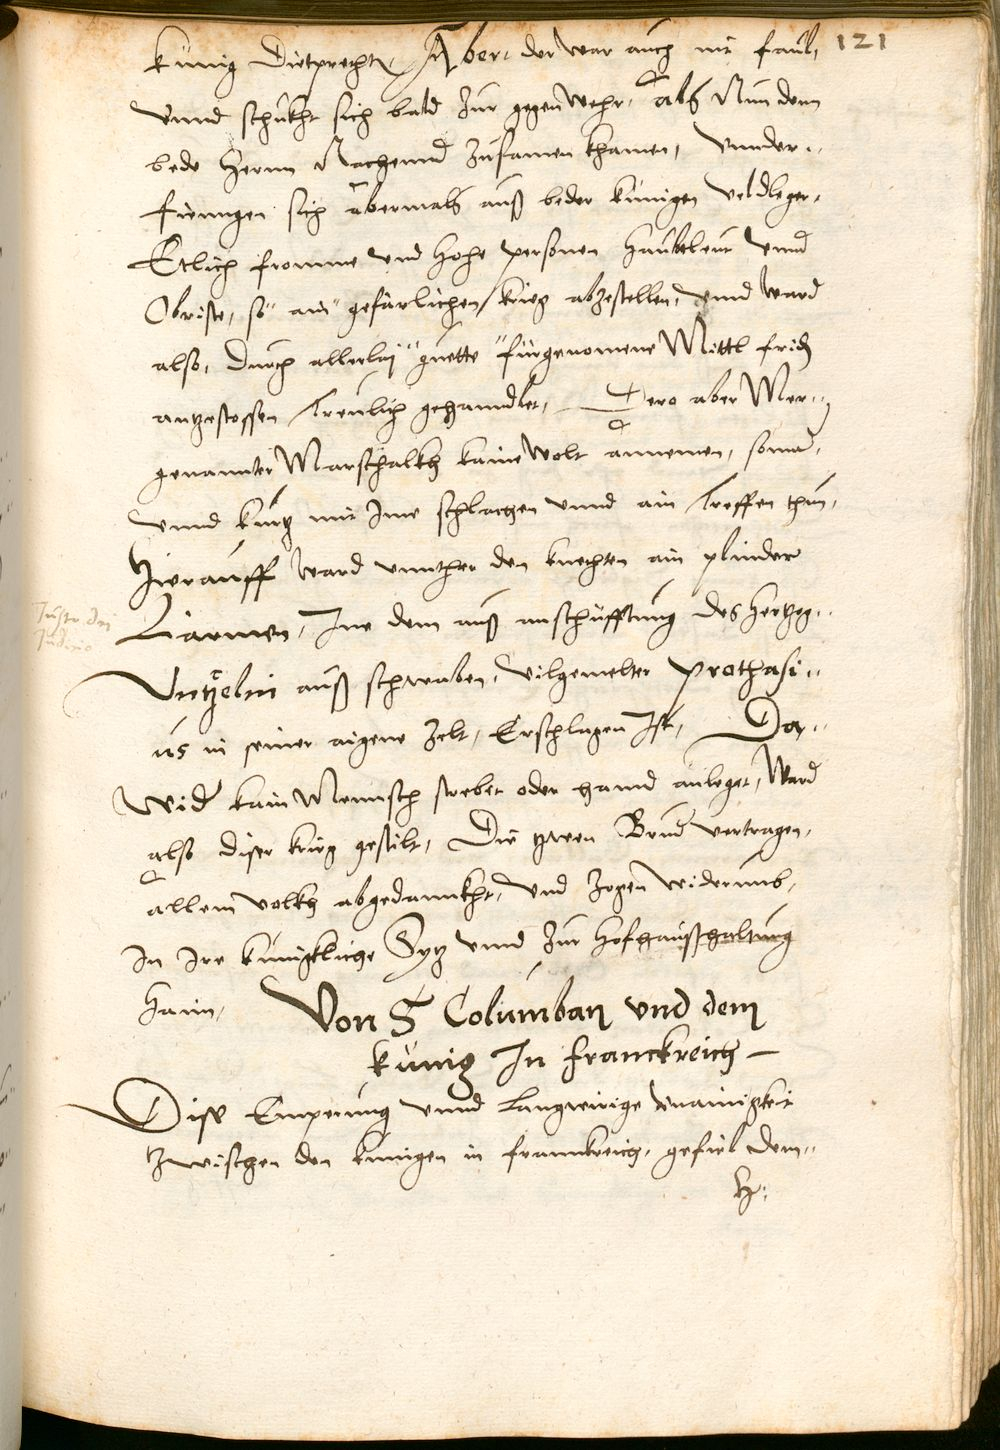 121
künig Dietprecht, Aber der war auch nit faul,
vnnd schickht sich bald zur gegenwehr, alß Nun dem
bede Herrn Nachennd zusamen khamen, vnnder¬
fiengen sich abermalß auß beder künigen veldleger,
Etlich fromme vnd hohe personen haubtleut vnnd
Obriste, so ain gefärlichen krieg abzestellen, vnnd ward
also, durch allerlaj guette fürgenomene Mittl frid
antzestossen treulich gehanndlet, Dero aber Mer¬
genannter Marschalkh kaine wolt annemen, sonnder,
vnnd kurtz mit Ime schlachen vnnd ain treffen thun,
Hierauff ward vnnther den knechten ain plinder
Lärmen, Inn dem auß anschüfftung des hertzog
Vntzelin auß schwaben, vilgemelter Prothasi¬
us in seiner aigene Zelt, Erschlagen Ist, Da¬
wider kain Mennsch strebet oder hannd anleget, Ward
also diser krieg gestilt, Die zwen Brueder vertragen,
allem volkh abgedannkht, vnd zogen widerumb,
In Ire künigkliche Sytz vnnd zur Hofhaußhaltung
haim,
Juste dei
Judicio
Von S Columban vnd dem
künig In Franckreich
Dise Emperung vnnd langweirige vnainigkeit
zwischen den künigen in frannkreich, gefiel dem
H: